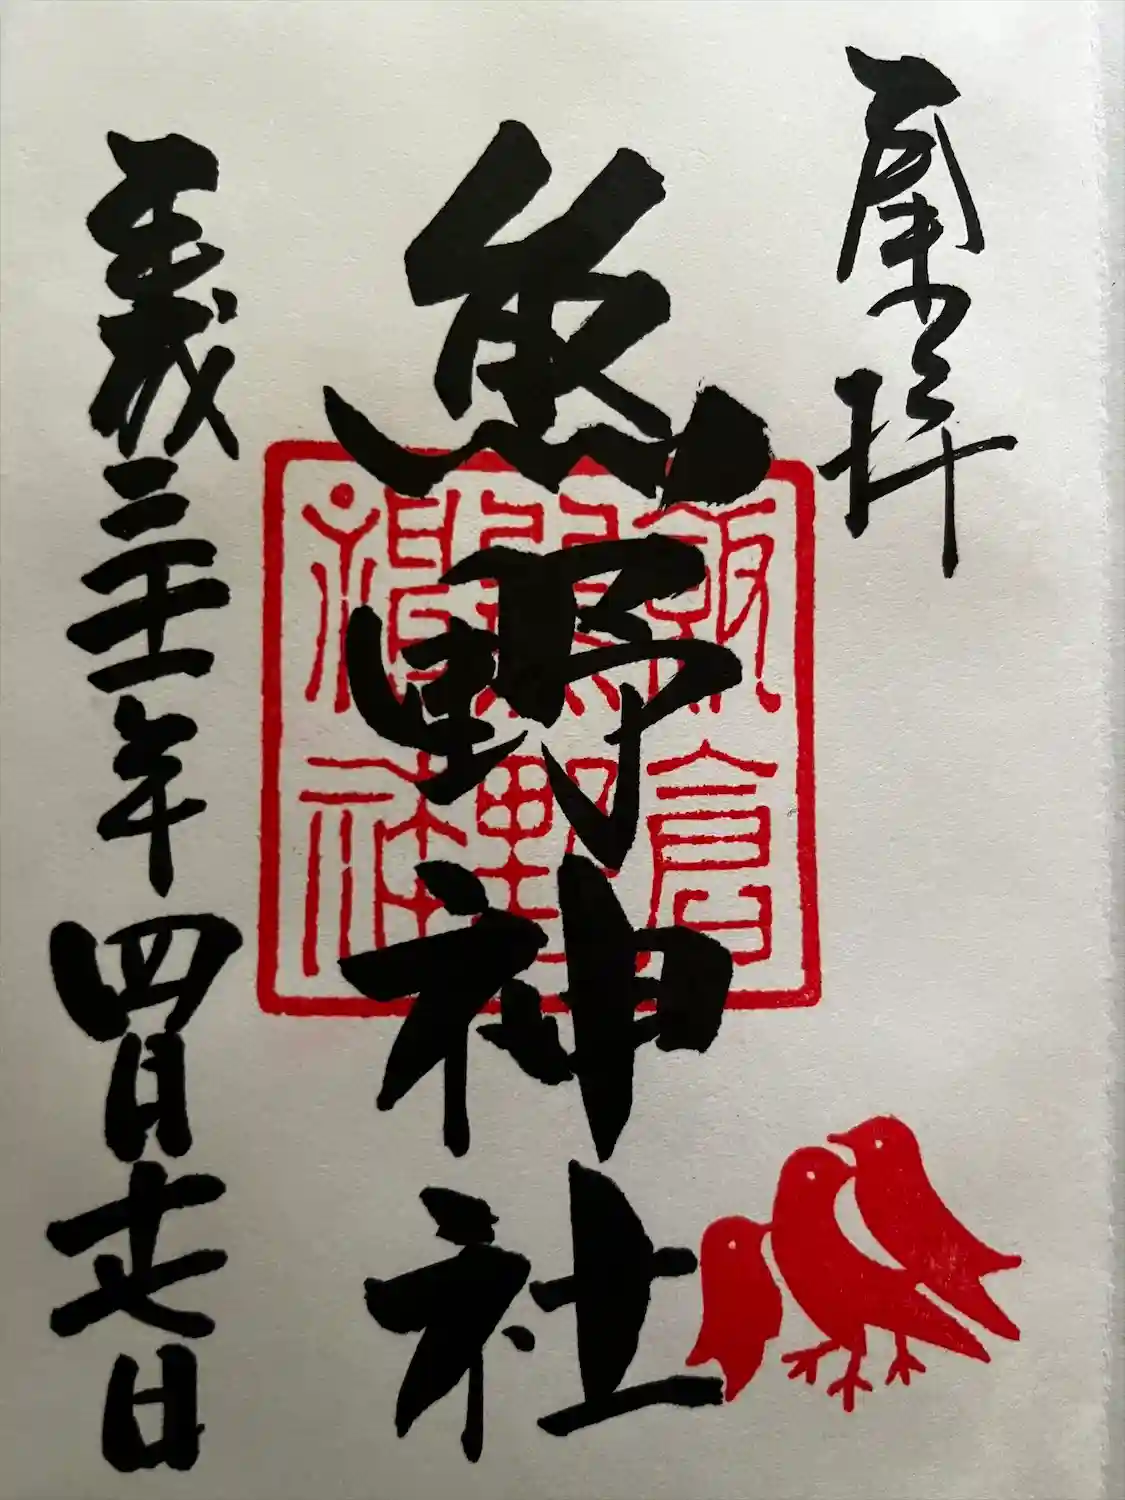 奉拝
熊野神社
平成三十一年四月十七日
飯倉
熊野
神社